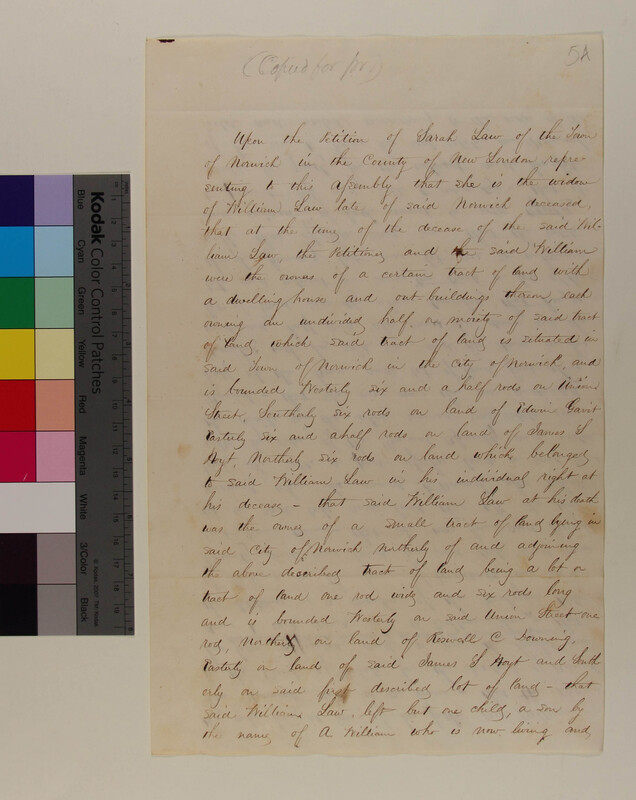 (Copied for pr)
5A
Upon the Petition of Sarah Law of the Town
of Norwich in the County of New London repre
senting to this Assembly that she is the widow
of William Law late of said Norwich deceased,
that at the time of the decease of the said Wil
liam Law, the Petitioner and the said William
were the owners of a certain tract of land with
a dwelling house and out buildings thereon, each
owning an undivided half or moiety of said tract
of land, which said tract of land is situated in
said Town of Norwich in the City of Norwich, and
is bounded Westerly six and a half rods on Union
Street, Southerly six rods on land of Edwin
Easterly six and a half rods on land of James S
Hoyt, Northerly six rods on land which belonged
to said William Law in his individual right at
his decease – that said William Law at his death
was the owner of a small tract of land lying in
said City of Norwich Northerly of and adjoining
the above described tract of land being a lot or
tract of land one rod wide and six rods long
and is bounded Westerly on said Union Street one
rod, Northerly on land of Roswell C Downing,
Easterly on land of said James S Hoyt and South
erly on said first described lot of land – that
said William Law, left but one child, a son by
the name of A William who is now living and
Kodak Color Control Patches
Blue
Cyan
Green
Yellow
Red
Magenta
White
3/Color
Black